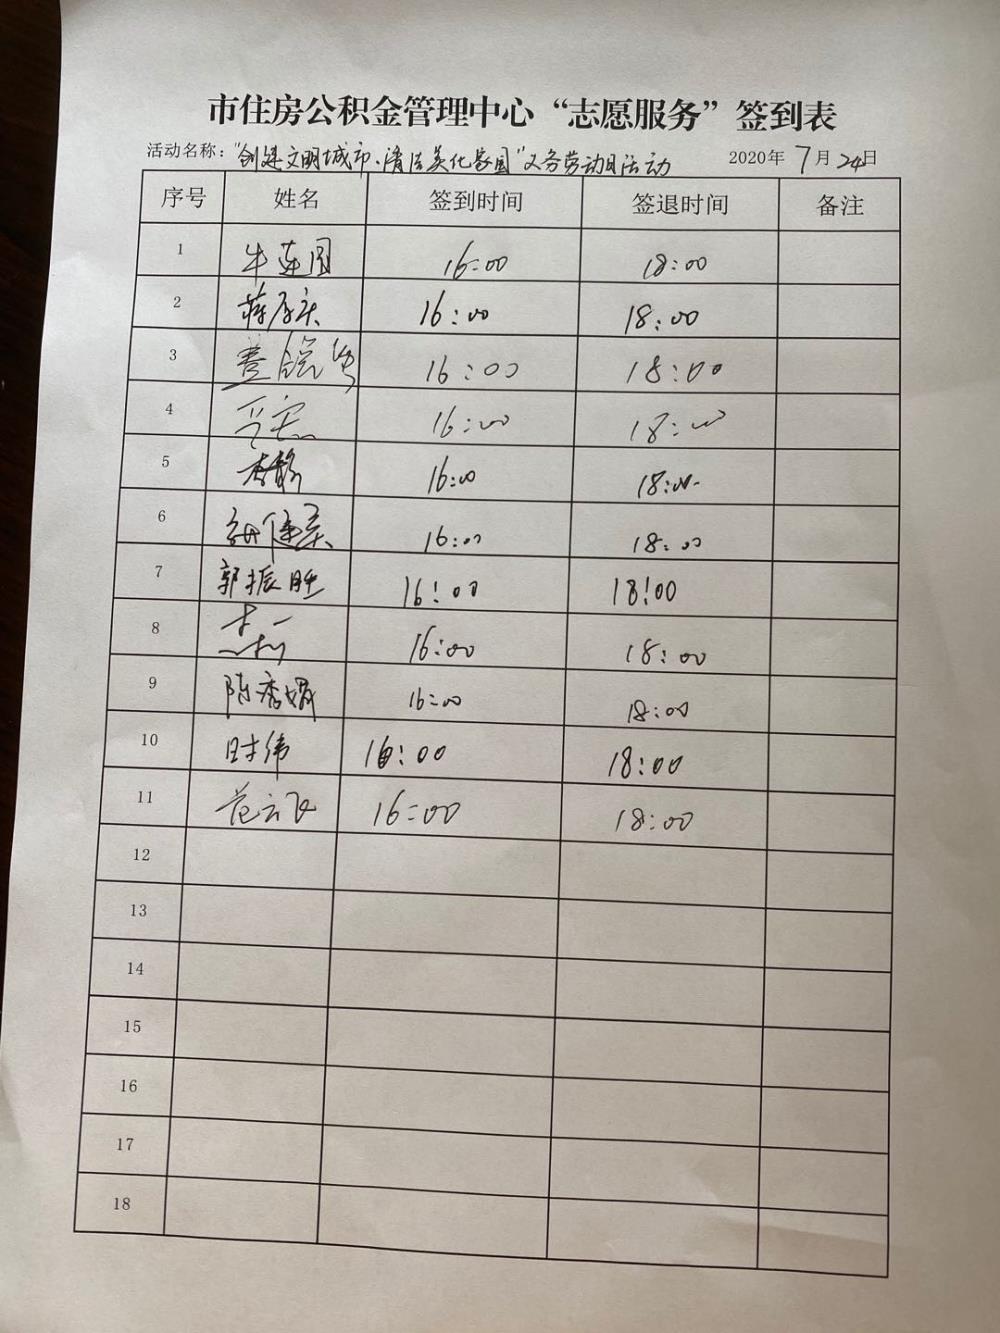 市住房公积金管理中心“志愿服务”签到表
活动名称：“创建文明城市·清洁美化家园”义务劳动日活动 2020年 7月 24日
序号 姓名 签到时间 签退时间 备注
1 牛莲圆 16:00 18:00
2 蒋存庆 16:00 18:00
3 16:00 18:00
4 16:00 18:00
5 李静 16:00 18:00
6 16:00 18:00
7 郭振胜 16:00 18:00
8 李莉 16:00 18:00
9 陈秀娟 16:00 18:00
10 时伟 16:00 18:00
11 范云飞 16:00 18:00
12
13
14
15
16
17
18